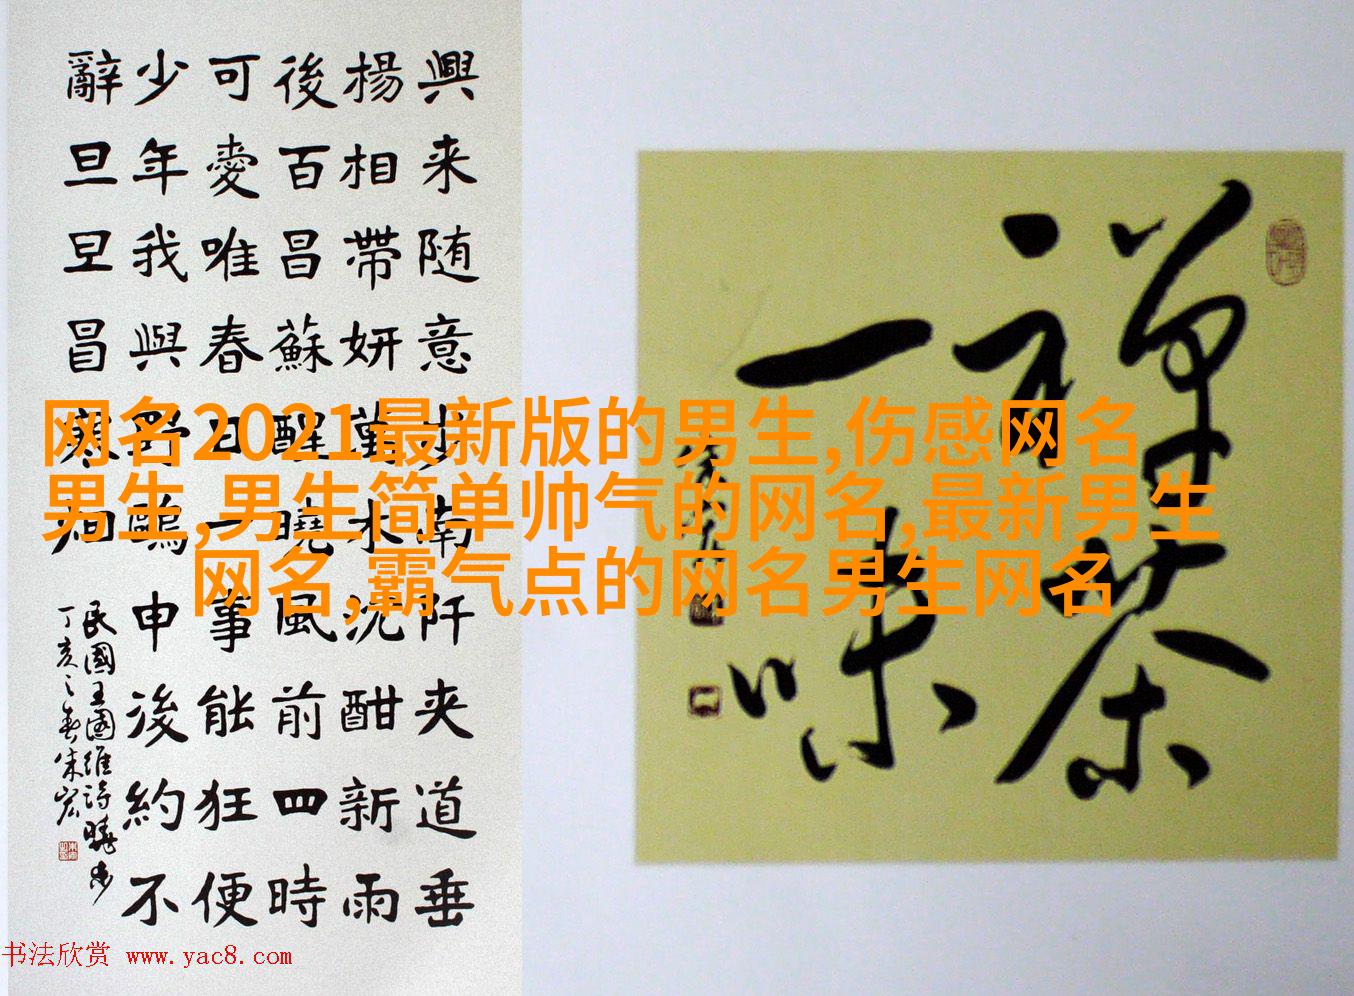 興来随意步南阡夹道垂
楊相帶妍萬木沈酣新雨
後百昌蘇醒曉風前四時
可愛唯春日一事能狂便
少年我與野鷗申後約不
辭旦旦冒寒烟
民國王國維詩曉步
丁亥之春朱宏
禅茶
一味
网名2021最新版的男生,伤感网名
男生,男生简单帅气的网名,最新男生
网名,霸气点的网名男生网名
书法欣赏 www.yac8.com